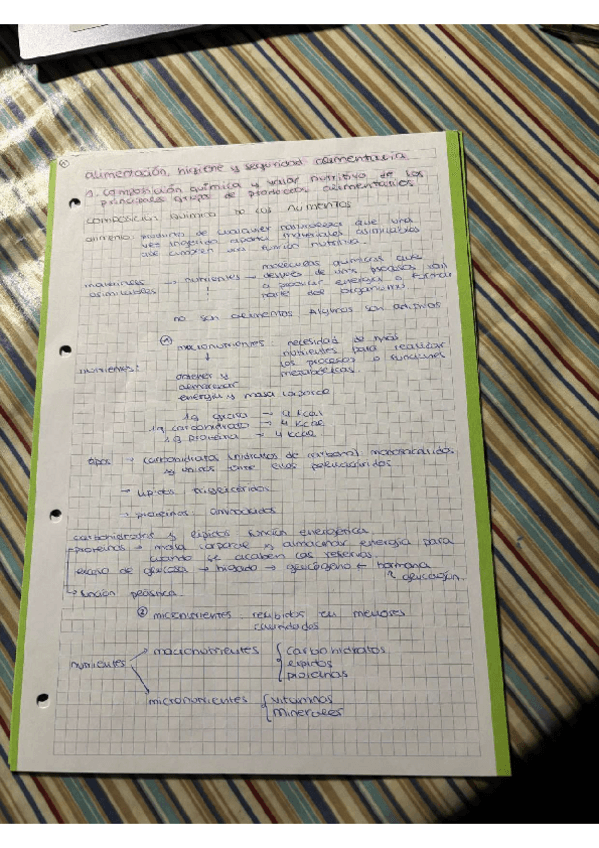 ①
alimentación, higiene y seguridad alimentaria
1. composición química y valor nutritivo de los
principales grupos de productos alimentarios
composición química de los alimentos
alimento: producto de cualquier naturaleza que una
vez ingerido aporta materiales asimilables
que cumplen una función nutritiva.
moléculas químicas que
materiales → nutrientes → después de unos procesos van
asimilables a producir energía o formar
parte del organismo
no son alimentos algunos son aditivos
① macronutrientes: necesidad de más
nutrientes para realizar
nutrientes: los procesos o funciones
obtener y metabólicas
almacenar
energía y masa corporal
1g grasa → 4 kcal
1g carbohidrato → 4 kcal
1g proteína → 4 kcal
tipos → carbohidratos (hidratos de carbono) monosacáridos
y unidos entre ellos polisacáridos
→ lípidos triglicéridos
→ proteínas aminoácidos
carbohidratos y lípidos función energética
proteínas → masa corporal y almacenar energía para
cuando se acaben las reservas.
exceso de glucosa → hígado → glucógeno ← hormona
glucagón.
→ función plástica.
② micronutrientes: recibidos en menores
cantidades
macronutrientes { carbohidratos
nutrientes lípidos
proteínas
micronutrientes { vitaminas
minerales